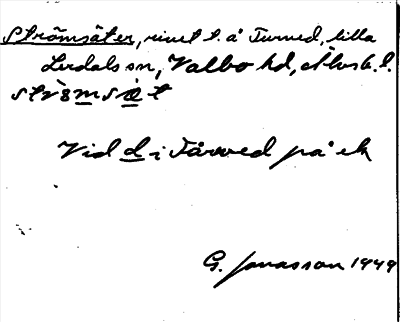 Strömsäter, rivet t. å Turved, lilla
Lerdals sn, Valbo hd, Älvsb. l.
strömsæt
Vid d i Tårved på ek
G. Jonasson 1949